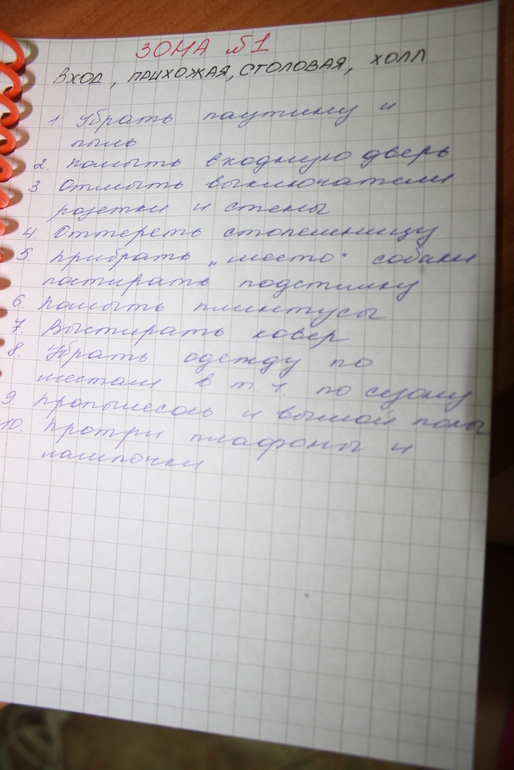 ЗОНА №1
ВХОД, ПРИХОЖАЯ, СТОЛОВАЯ, ХОЛЛ
1 Убрать паутину и
пыль
2. Помыть входную дверь
3 Отмыть выключатели
розетки и стены
4. Оттереть столешницу
5. Прибрать „место" собаки
постирать подстилку
6. Помыть плинтусы
7. Выстирать ковер
8. Убрать одежду по
местам в т ч. по сезону
9. Пропылесось и вымой полы
10. Протри плафоны и
лампочки